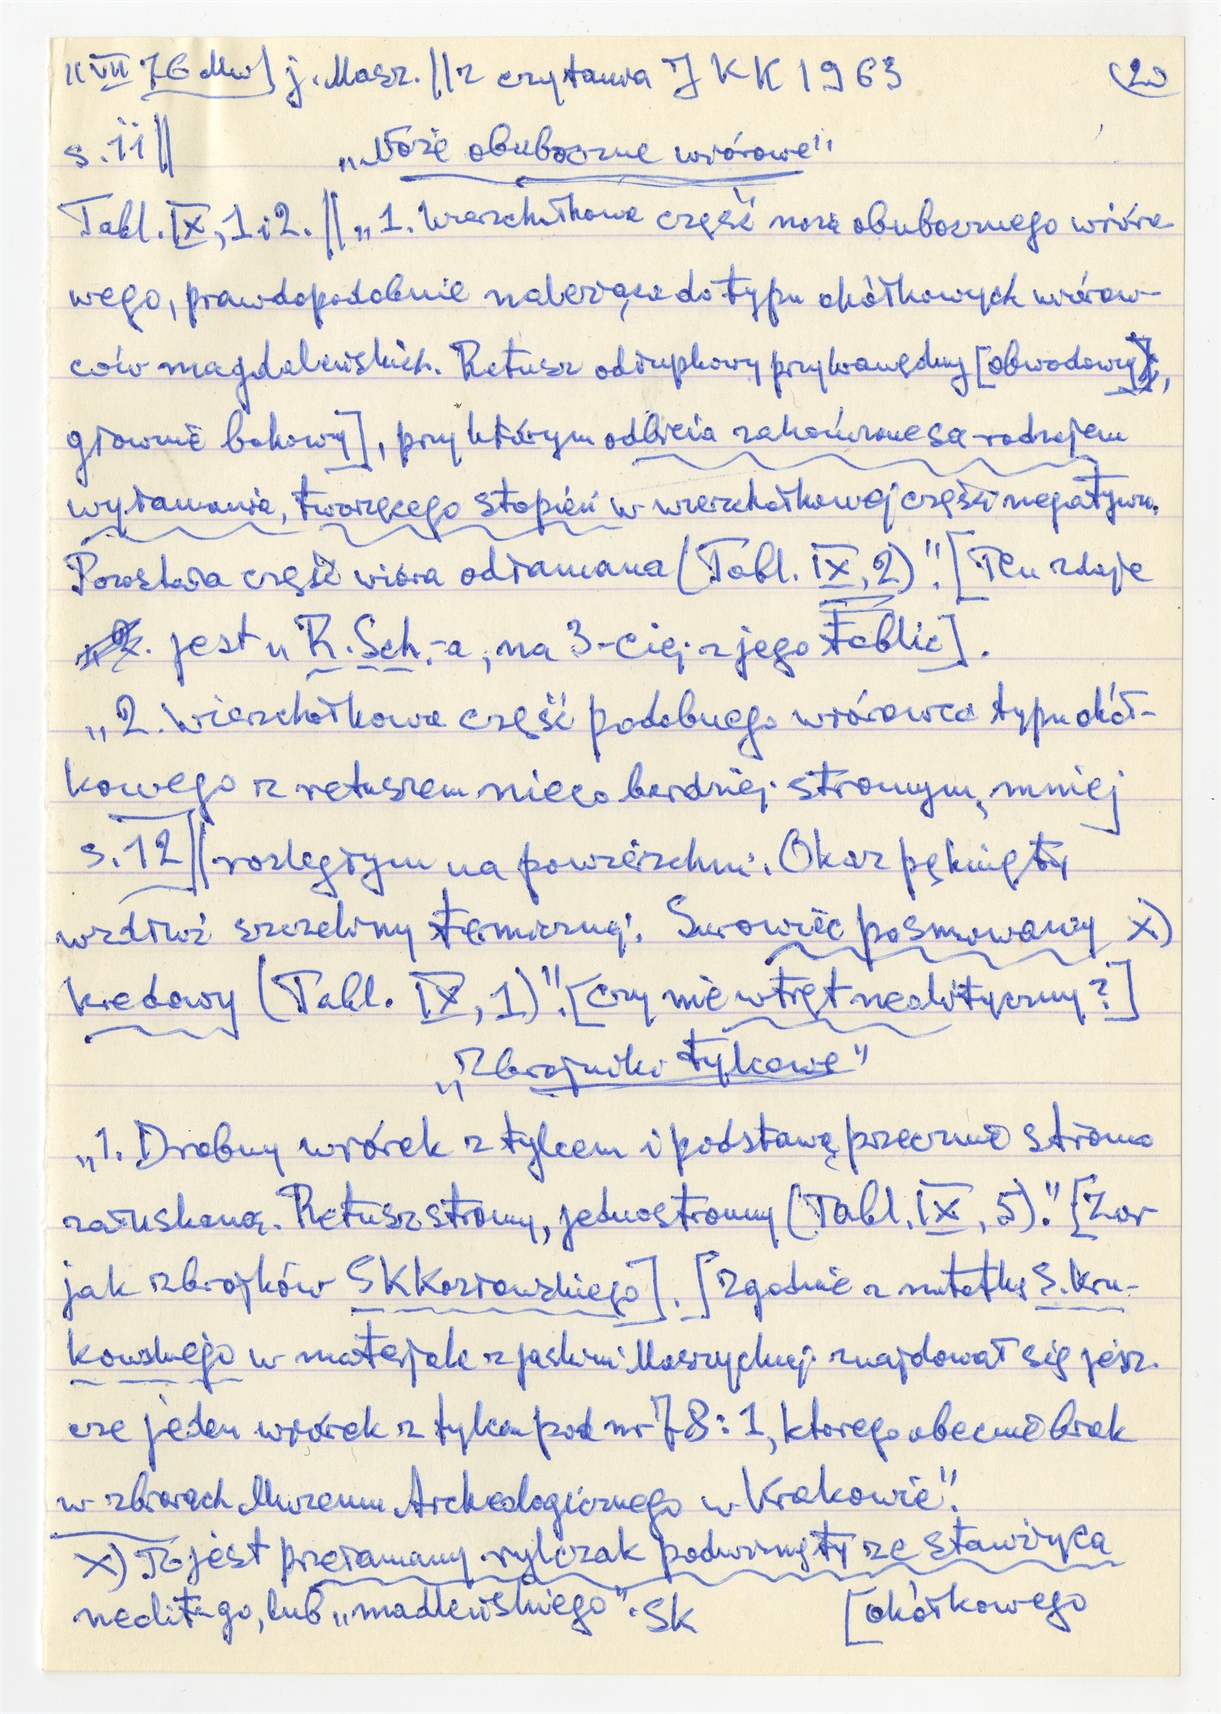 11 VII 76 Mw] j. Masz. || z czytania JKK 1963 20
s. 11 || „Noże obuboczne wiórowe"
Tabl. IX, 1 i 2. || „1. Wierzchołkowa część noża obubocznego wióro
wego, prawdopodobnie należąca do typu okółkowych wiórow-
ców magdaleńskich. Retusz odłupkowy przykrawędny [obwodowy],
głownie bokowy], przy którym odbicia zakończone są rodzajem
wyłamania, tworzącego stopień w wierzchołkowej części negatywu.
Pozostała część wióra odłamana (Tabl. IX, 2)". [Tłu zdaje
jest u R. Sch.-a, na 3-ciej z jego tablic].
„2. Wierzchołkowa część podobnego wiórowca typu okół-
kowego z retuszem nieco bardziej stromym, mniej
s. 12 || rozległym na powierzchni. Okaz pęknięty
wzdłuż szczeliny termicznej. Surowiec pasmowany x)
kredowy (Tabl. IX, 1)". [czy nie wtręt neolityczny?]
„Zbrojniki tylcowe"
„1. Drobny wiórek z tylcem i podstawą przecznie stromo
załuskaną. Retusz stromy, jednostronny (Tabl. IX, 5)." [Zar
jak zbrojków SKKozłowskiego]. [Zgodnie z notatką S. Kru-
kowskiego w materjale z jaskini Maszyckiej znajdował się jesz-
cze jeden wiórek z tylcem pod nr 78:1, którego obecnie brak
w zbiorach Muzeum Archeologicznego w Krakowie".
x) To jest przełamany rylczak podwinięty ze stawżyca
neolit-go, lub „madleńskiego". SK [okółkowego